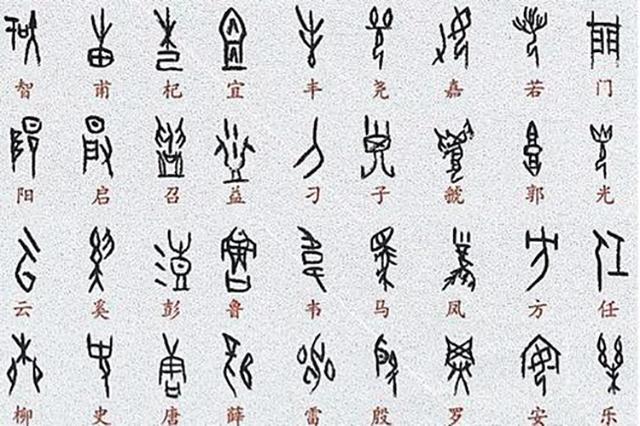 智 甫 杞 宜 丰 尧 嘉 若 门
阳 启 召 益 刁 子 虢 郭 光
云 奚 彭 鲁 韦 马 凤 方 任
柳 史 唐 薛 雷 殷 罗 安 乐